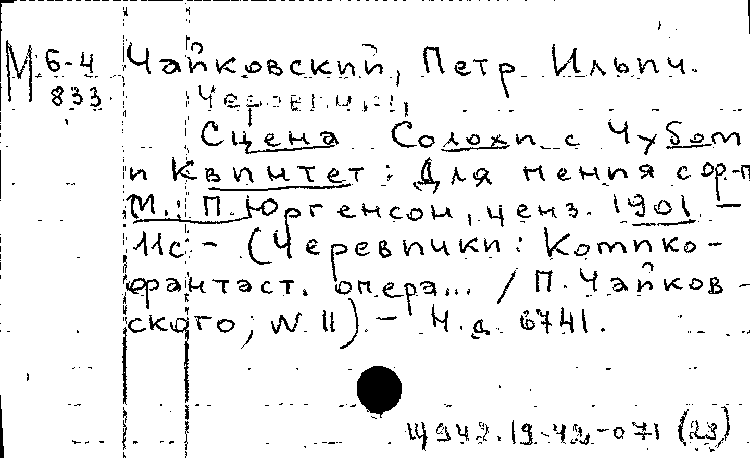 М 6-4 Чайковский, Петр Ильич.
833 Черевички,
Сцена Солохи с Чубом
и Квинтет: Для пения с ф-п
М.: П. Юргенсон, ценз. 1901 –
11с – (Черевички: Комико-
фантаст. опера... / П. Чайков-
ского; N 11) – Н.д. 6741.
Щ942.19-42-071 (23)